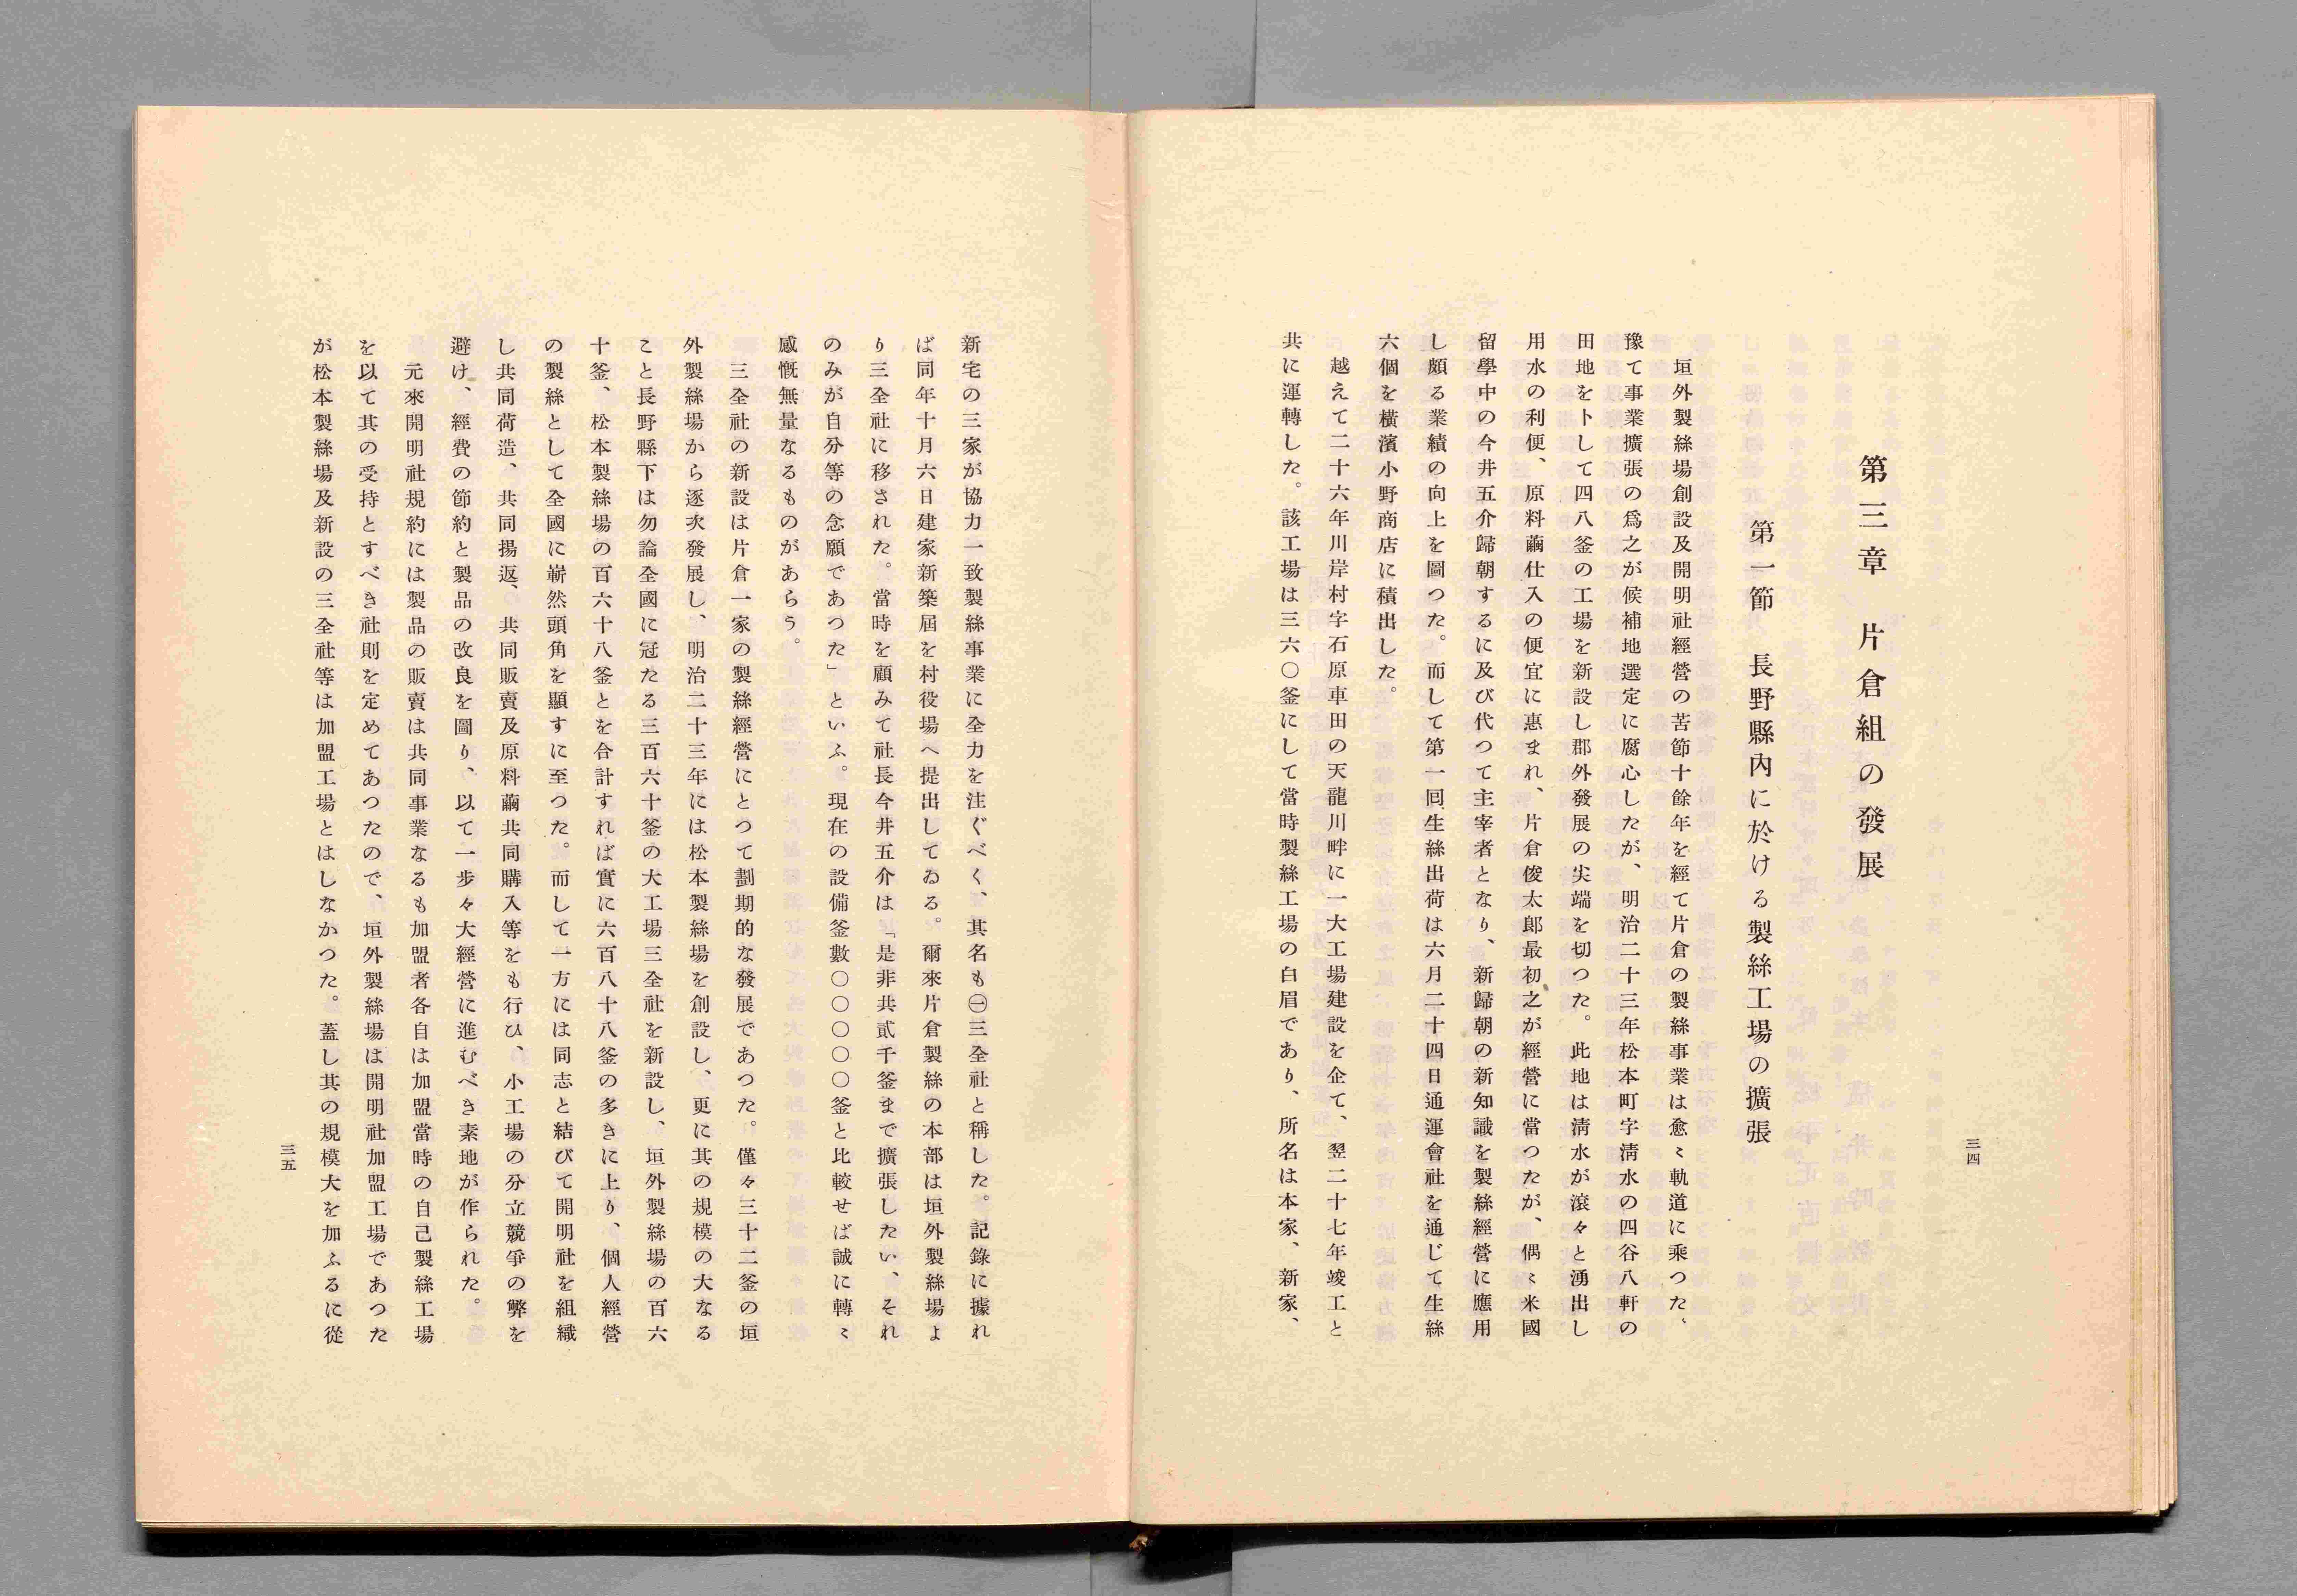 三四
第三章　片倉組の發展
第一節　長野縣內に於ける製絲工場の擴張
垣外製絲場創設及開明社經營の苦節十餘年を經て片倉の製絲事業は愈〻軌道に乘つた、
豫て事業擴張の爲之が候補地選定に腐心したが、明治二十三年松本町字淸水の四谷八軒の
田地を卜して四八釜の工場を新設し郡外發展の尖端を切つた。此地は淸水が滾々と湧出し
用水の利便、原料繭仕入の便宜に惠まれ、片倉俊太郞最初之が經營に當つたが、偶〻米國
留學中の今井五介歸朝するに及び代つて主宰者となり、新歸朝の新知識を製絲經營に應用
し頗る業績の向上を圖つた。而して第一囘生絲出荷は六月二十四日通運會社を通じて生絲
六個を橫濱小野商店に積出した。
越えて二十六年川岸村字石原車田の天龍川畔に一大工場建設を企て、翌二十七年竣工と
共に運轉した。該工場は三六〇釜にして當時製絲工場の白眉であり、所名は本家、新家、
新宅の三家が協力一致製絲事業に全力を注ぐべく、其名も㊀三全社と稱した。記錄に據れ
ば同年十月六日建家新築屆を村役場へ提出してゐる。爾來片倉製絲の本部は垣外製絲場よ
り三全社に移された。當時を顧みて社長今井五介は「是非共貳千釜まで擴張したい、それ
のみが自分等の念願であつた」といふ。現在の設備釜數〇〇〇〇〇釜と比較せば誠に轉〻
感慨無量なるものがあらう。
三全社の新設は片倉一家の製絲經營にとつて劃期的な發展であつた。僅々三十二釜の垣
外製絲場から逐次發展し、明治二十三年には松本製絲場を創設し、更に其の規模の大なる
こと長野縣下は勿論全國に冠たる三百六十釜の大工場三全社を新設し、垣外製絲場の百六
十釜、松本製絲場の百六十八釜とを合計すれば實に六百八十八釜の多きに上り、個人經營
の製絲として全國に嶄然頭角を顯すに至つた。而して一方には同志と結びて開明社を組織
し共同荷造、共同揚返、共同販賣及原料繭共同購入等をも行ひ、小工場の分立競爭の弊を
避け、經費の節約と製品の改良を圖り、以て一步々大經營に進むべき素地が作られた。
元來開明社規約には製品の販賣は共同事業なるも加盟者各自は加盟當時の自己製絲工場
を以て其の受持とすべき社則を定めてあつたので、垣外製絲場は開明社加盟工場であつた
が松本製絲場及新設の三全社等は加盟工場とはしなかつた。蓋し其の規模大を加ふるに從
三五